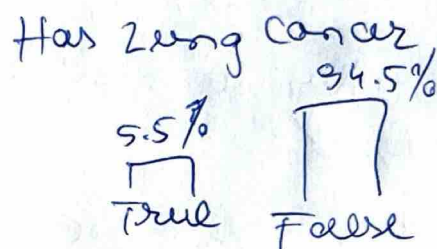 Has Lung Cancer
94.5%
5.5%
True False